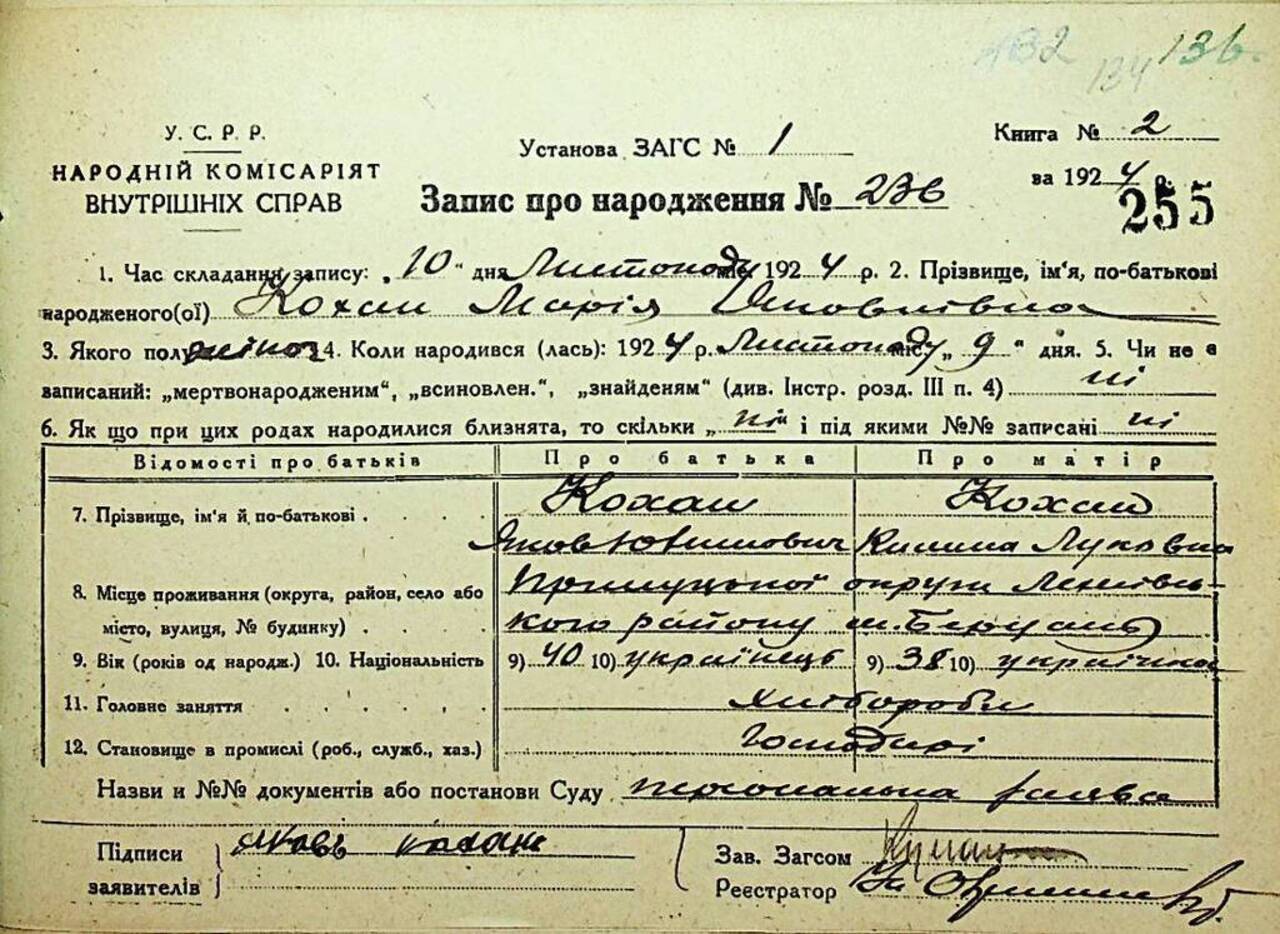 132 134 136.
У. С. Р. Р.
НАРОДНІЙ КОМІСАРІЯТ
ВНУТРІШНІХ СПРАВ
Установа ЗАГС № 1
Запис про народження №
Книга № 2
за 1924 р.
255
1. Час складання запису: „10“ дня Листопаду міс. 1924 р. 2. Прізвище, ім'я, по-батькові
народженого(ої) Кохан Марія Яковлівна
3. Якого полу жіноч 4. Коли народився (лась): 1924 р. Листопаду міс. „9“ дня. 5. Чи не є
записаний: „мертвонародженим“, „всиновлен.“, „знайденям“ (див. Інстр. розд. III п. 4) ні
6. Як що при цих родах народилися близнята, то скільки „ні“ і під якими №№ записані ні
Відомості про батьків Про батька Про матір
7. Прізвище, ім'я й по-батькові Кохан Кохан
Яков Килина Луковна
8. Місце проживання (округа, район, село або Прилуцької округи
місто, вулиця, № будинку) кого району
9. Вік (років од народж.) 10. Національність 9) 40 10) українець 9) 38 10) українка
11. Головне заняття Хлібороби
12. Становище в промислі (роб., служб., хаз.) Господарі
Назви и №№ документів або постанови Суду персональна заява
Підписи
заявителів
Яковъ Кохан
Зав. Загсом
Реєстратор